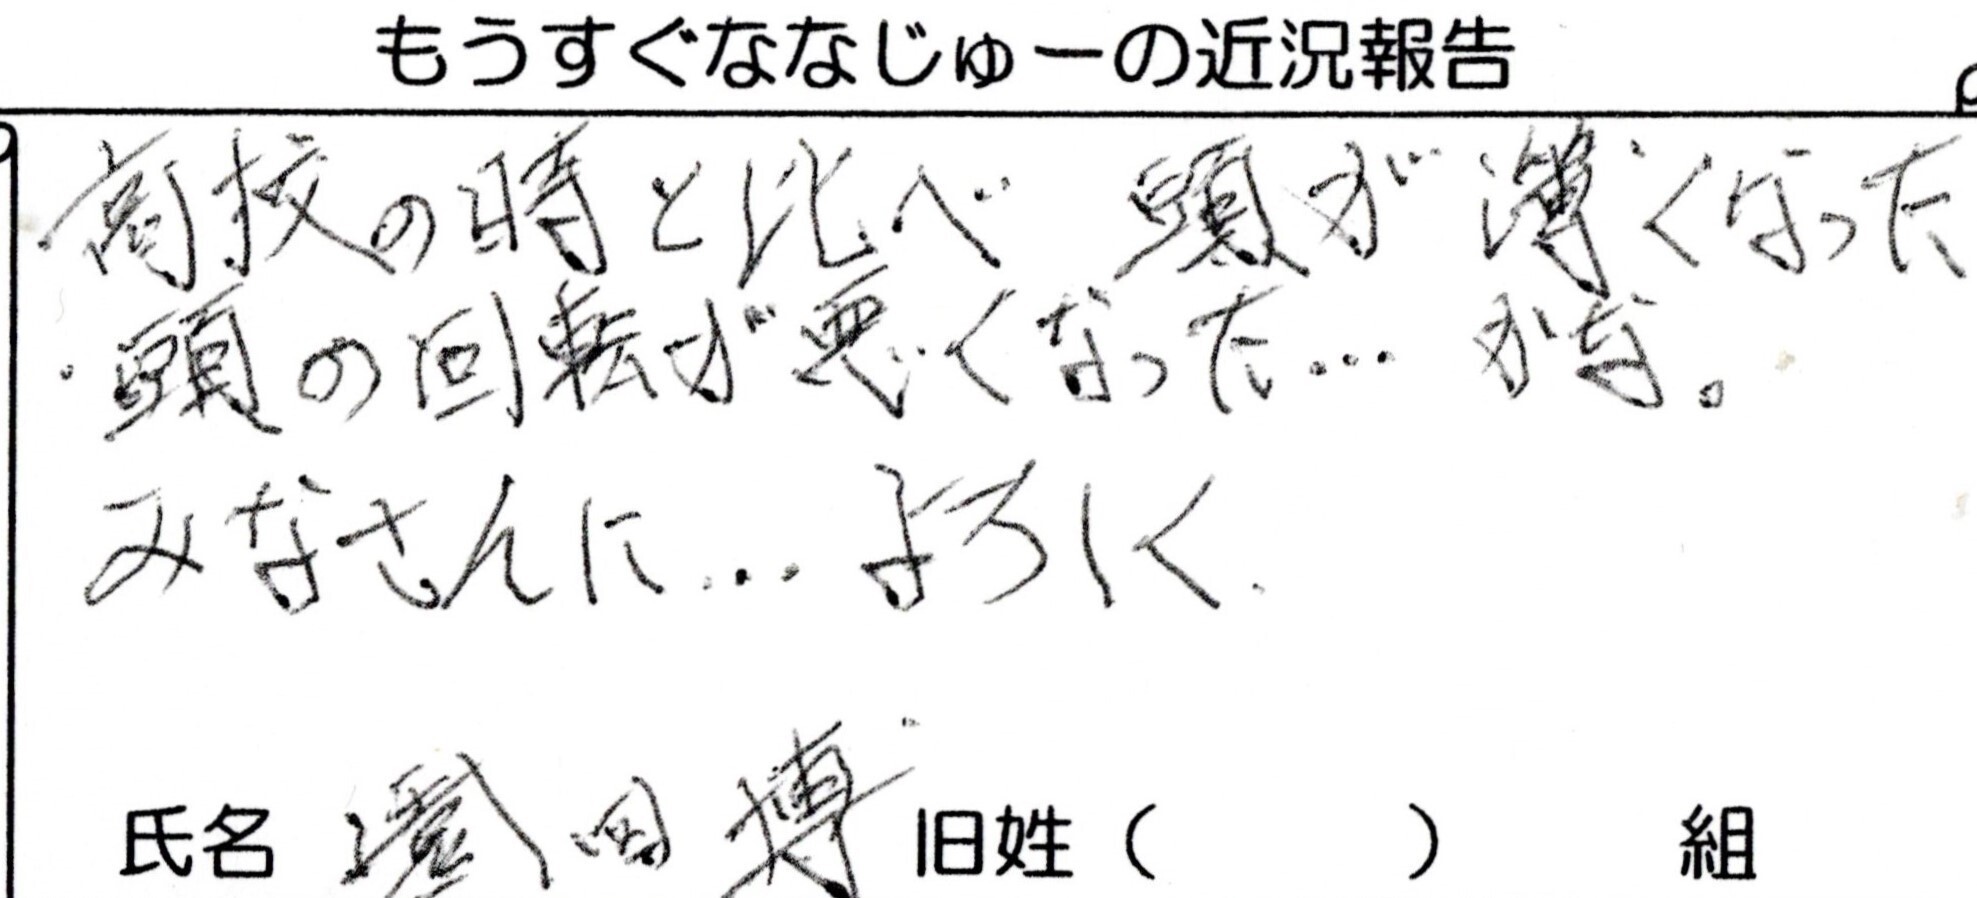 もうすぐななじゅーの近況報告
高校の時と比べ 頭が薄くなった
・頭の回転が悪くなった… かな。
みなさんに… よろしく.
氏名 田 博 旧姓( ) 組